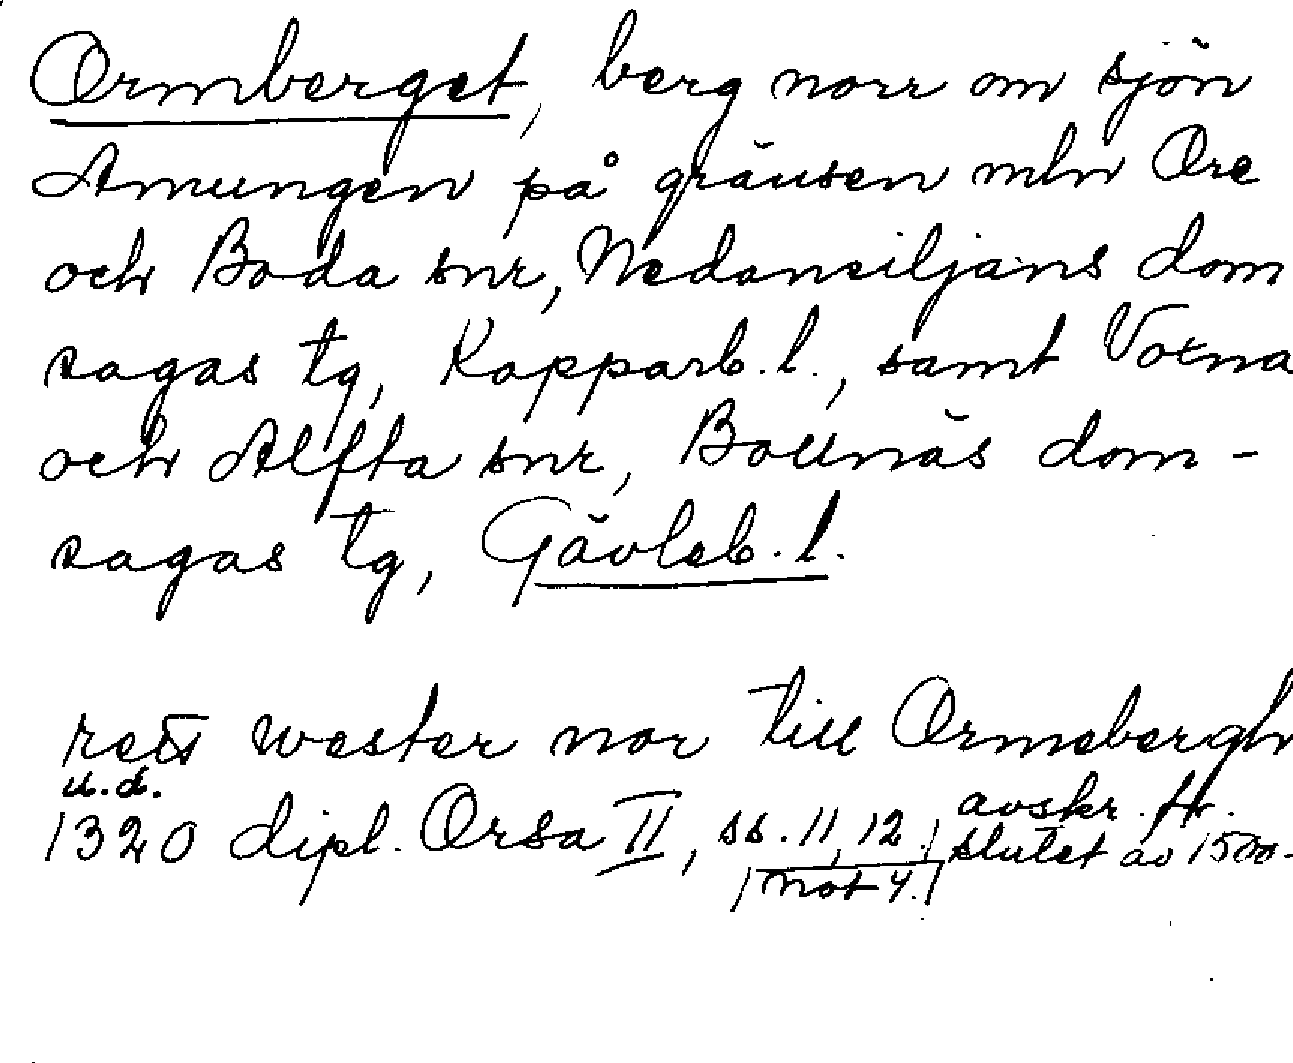 Ormberget, berg norr om sjön
Amungen på gränsen mln Ore
och Boda snr, Nedansiljans dom
sagas tg, Kopparb. l., samt Voxna
och Alfta snr, Bollnäs dom-
sagas tg, Gävleb. l.
rett wester nor till Ormsbergh
u.d.
1320 dipl. Orsa II, ss. 11, 12. avskr. fr.
/not 4./ slutet av 1500-